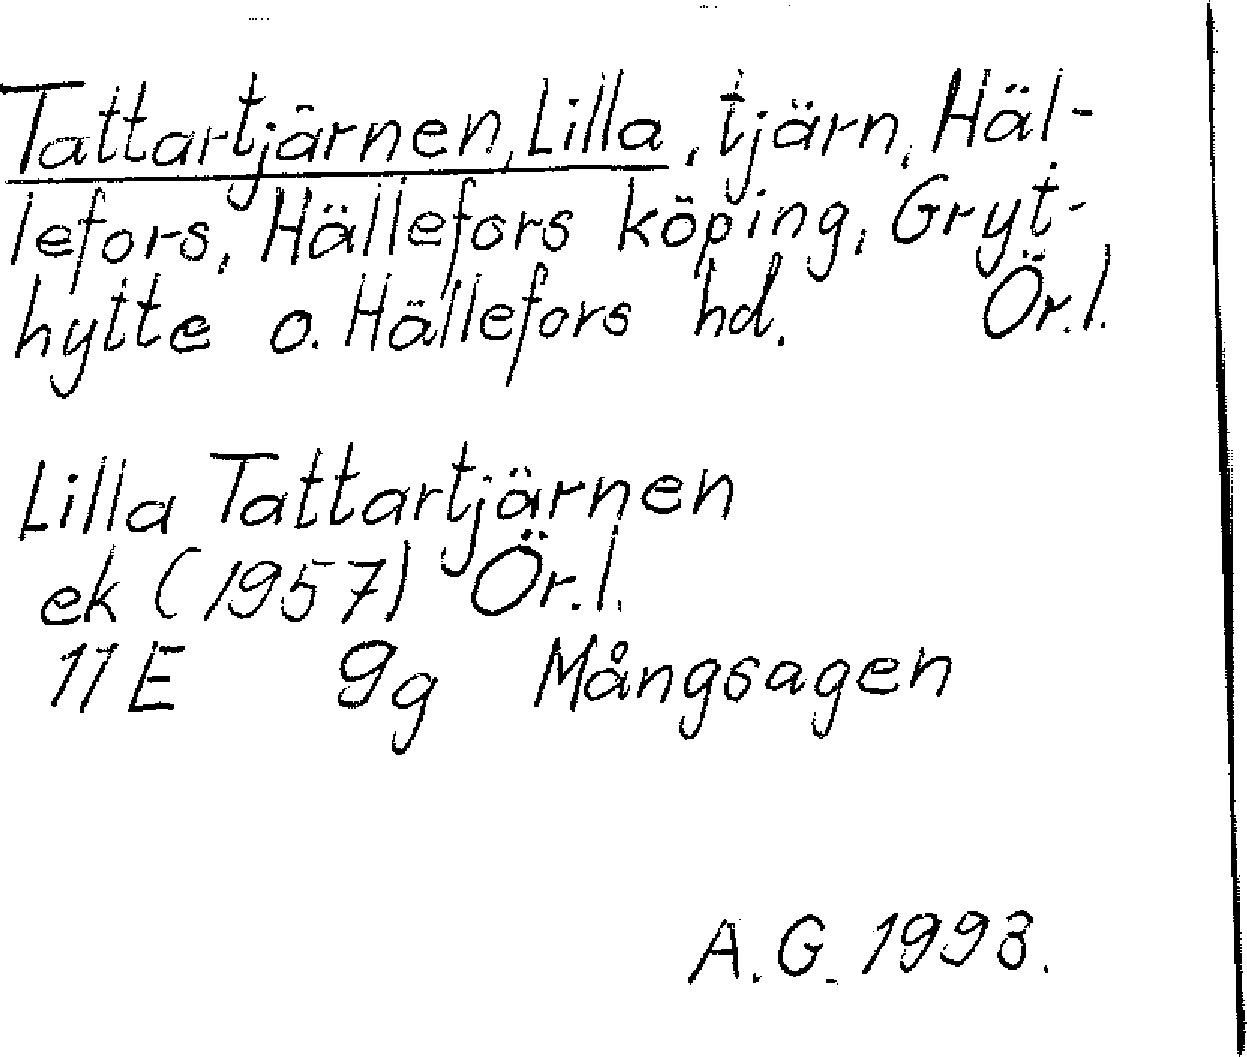 Tattartjärnen, Lilla, tjärn, Häl-
lefors, Hällefors köping, Gryt-
hytte o. Hällefors hd. Ör.l.
Lilla Tattartjärnen
ek (1957) Ör.l.
11E 9g Mångsagen
A.G. 1993.